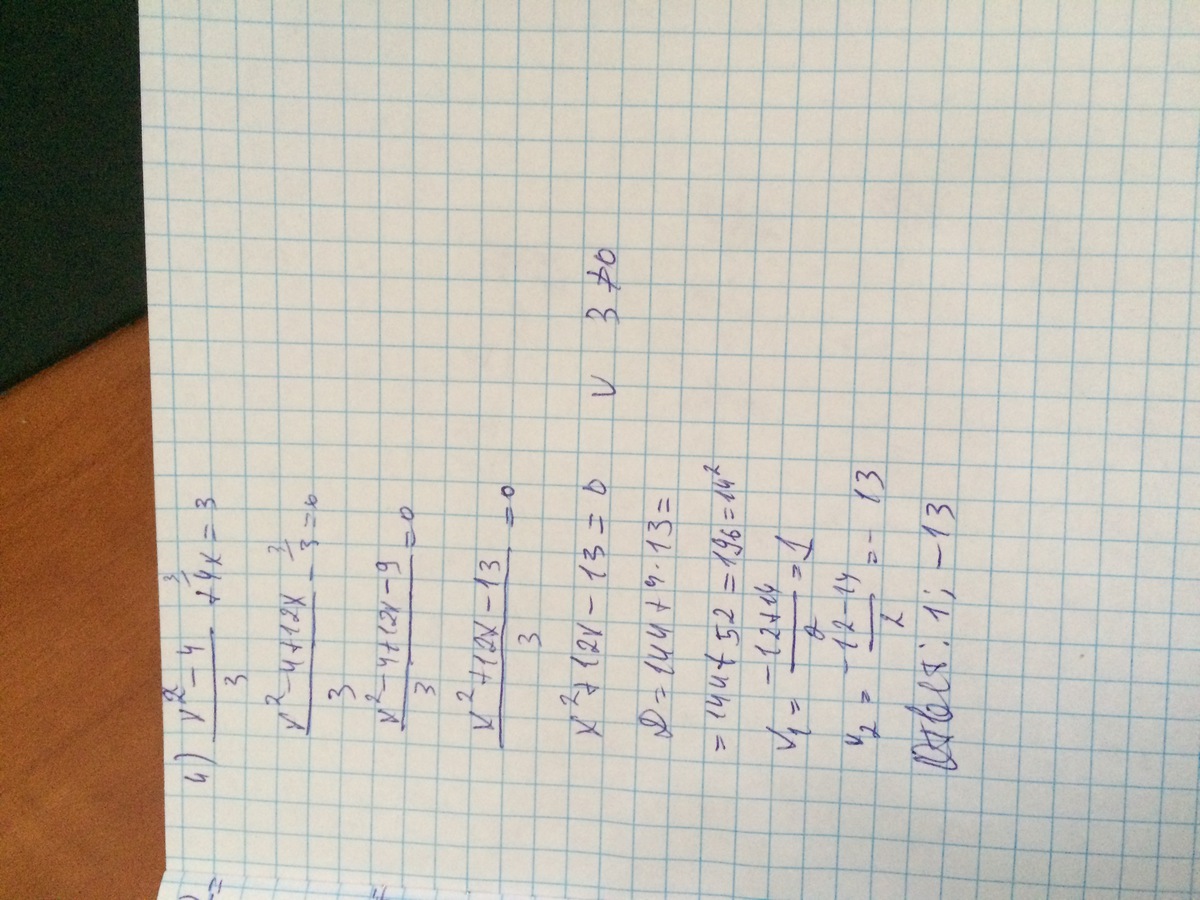 4) (x² − 4)/3 + ³⁄4x = 3
(x² − 4 + 12x)/3 − ³⁄3 = 0
(x² − 4 + 12x − 9)/3 = 0
(x² + 12x − 13)/3 = 0
x² + 12x − 13 = 0 V 3 ≠ 0
D = 144 + 4 · 13 =
= 144 + 52 = 196 = 14²
x₁ = (−12 + 14)/2 = 1
x₂ = (−12 − 14)/2 = − 13
Ответ: 1; −13